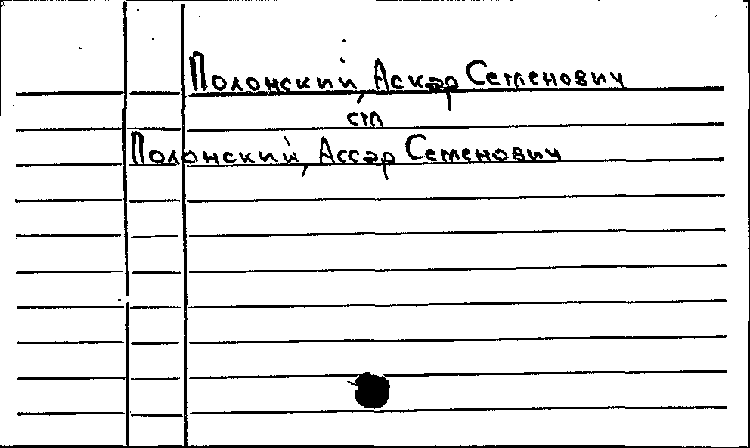 Полонский, Аскэр Семенович
см
Полонский, Ассэр Семенович